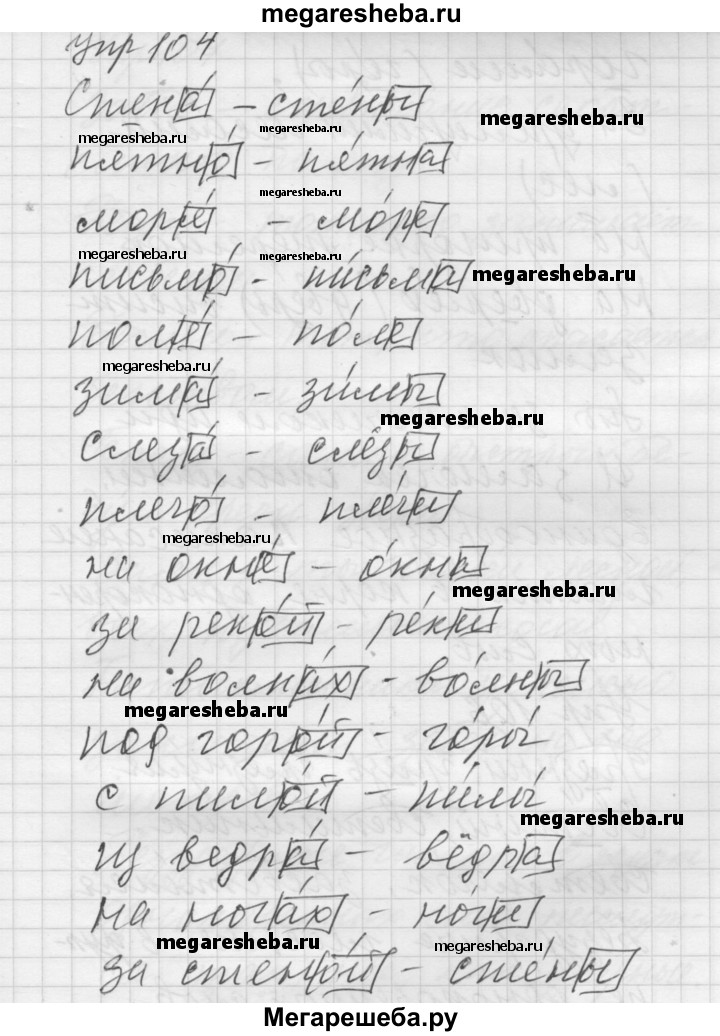 megaresheba.ru
Упр 104
Стена́ – сте́ны
megaresheba.ru
megaresheba.ru
megaresheba.ru
пятно́ – пя́тна
megaresheba.ru
море́ – мо́ре
megaresheba.ru
megaresheba.ru
письмо́ – пи́сьма
megaresheba.ru
поле́ – по́ле
megaresheba.ru
зима́ – зи́мы
megaresheba.ru
слеза́ – слёзы
плечо́ – пле́чи
megaresheba.ru
на окне́ – о́кна
megaresheba.ru
за реко́й – ре́ки
на волна́х – во́лны
megaresheba.ru
под горо́й – го́ры́
с пило́й – пи́лы́
megaresheba.ru
из ведра́ – вёдра
на нога́х – но́ги
megaresheba.ru
megaresheba.ru
за стено́й – сте́ны
Мегарешеба.ру